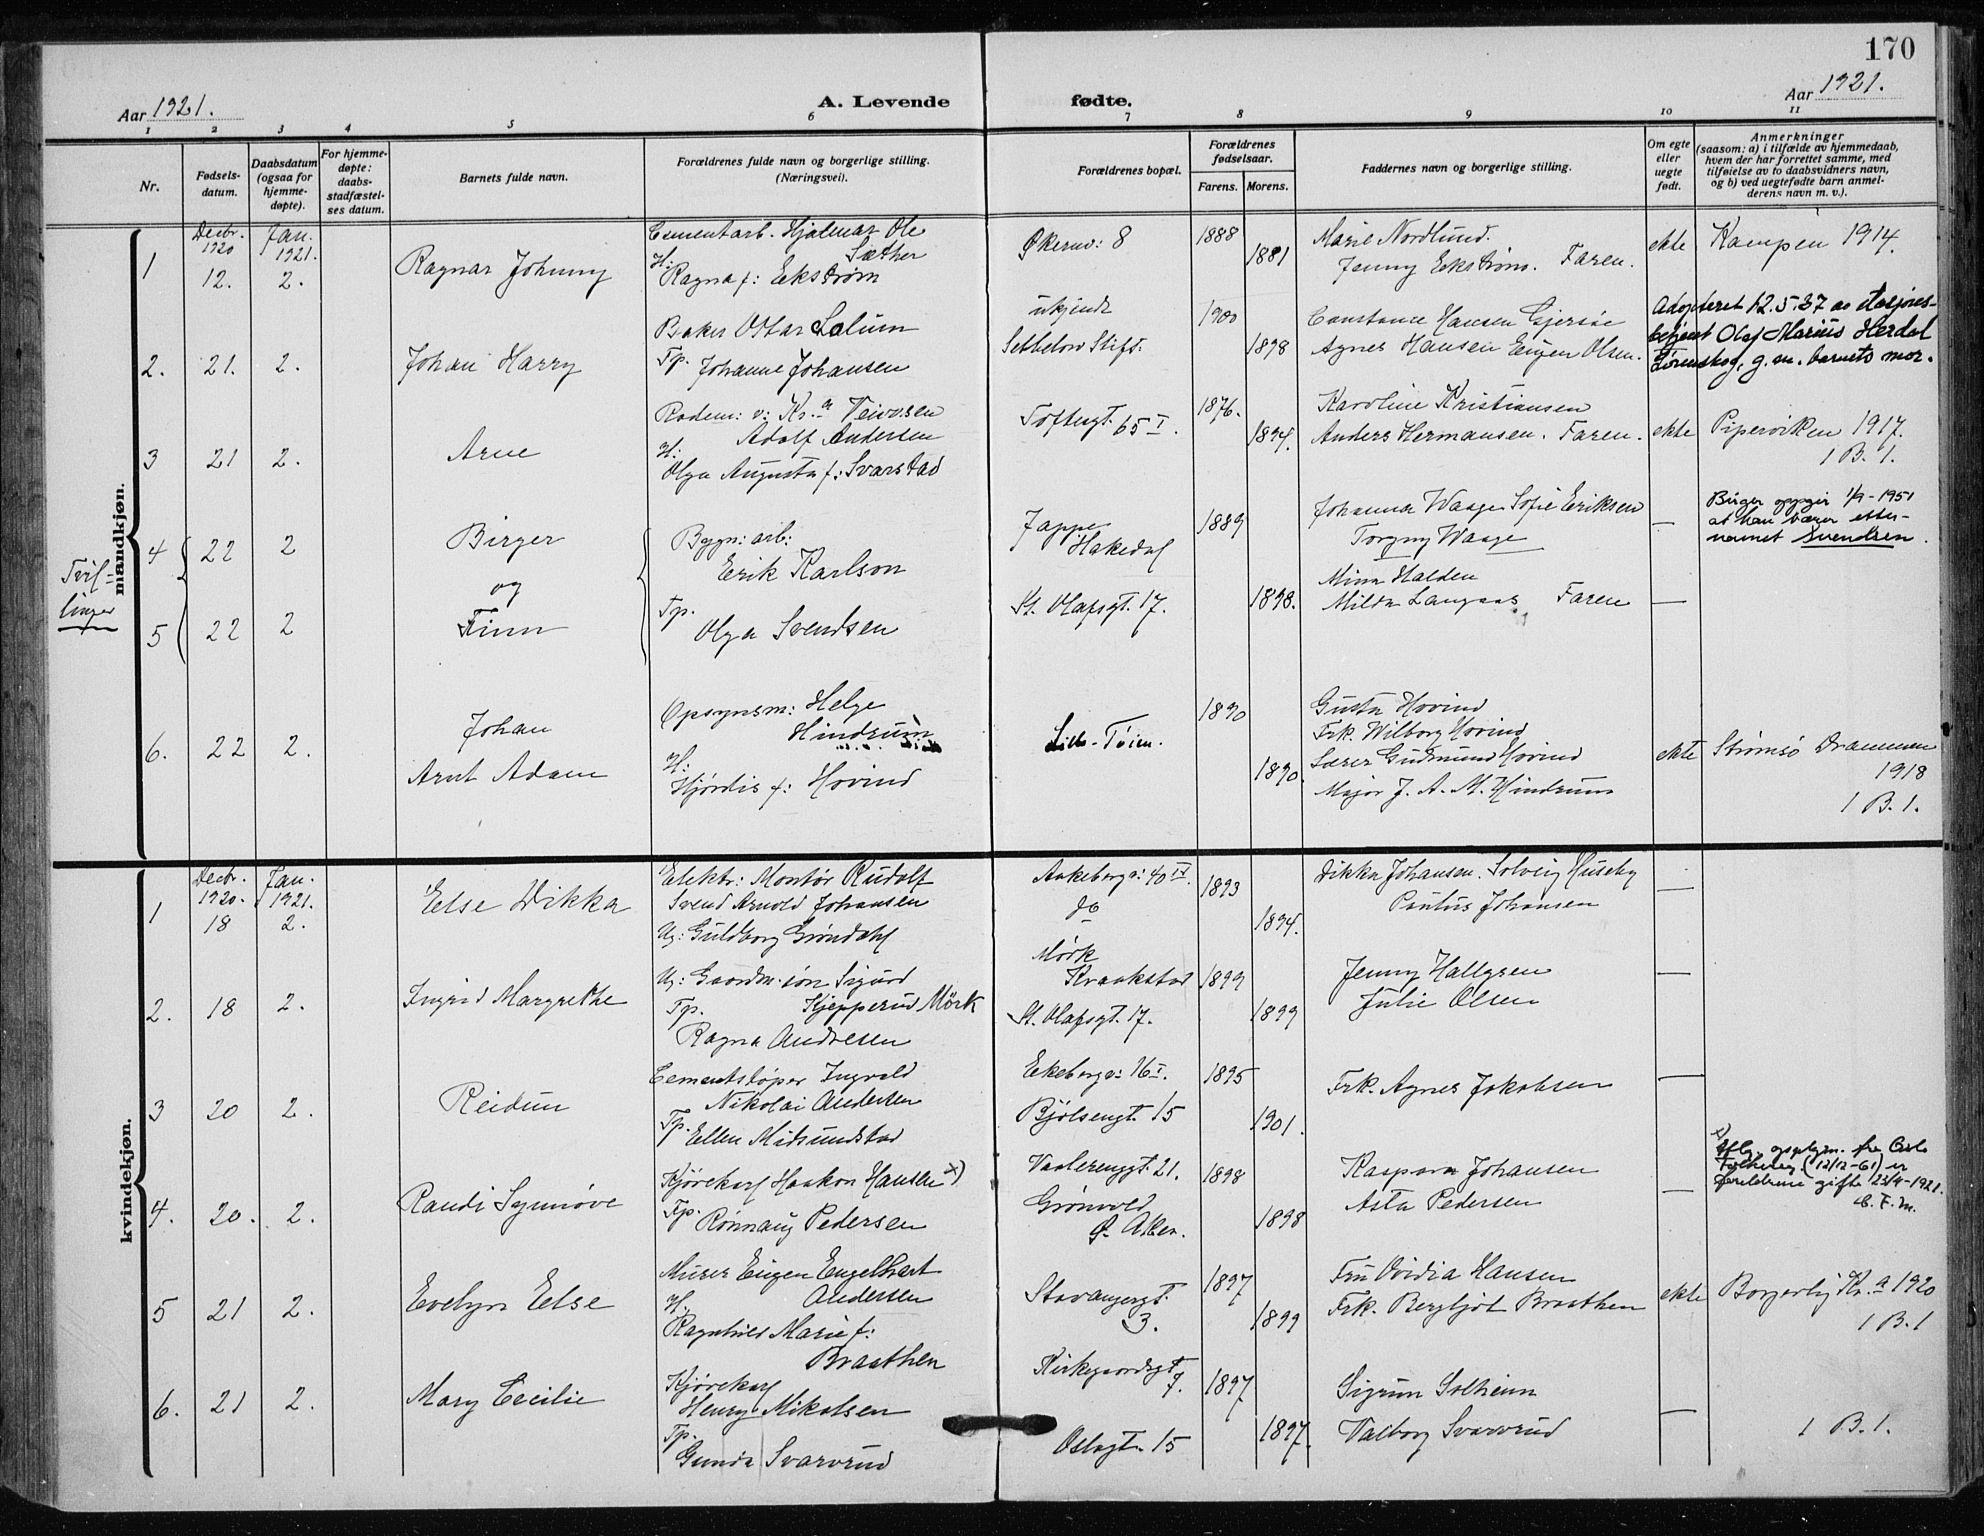 170
Aar 1921.
A. Levende
fødte.
Aar 1921.
1 2 3 4 5 6 7 8 9 10 11
Nr.
Fødsels-
datum.
Daabsdatum
(ogsaa for
hjemme-
døpte).
For hjemme-
døpte:
daabs-
stadfæstel-
ses datum.
Barnets fulde navn.
Forældrenes fulde navn og borgerlige stilling.
(Næringsvei).
Forældrenes bopæl.
Forældrenes
fødselsaar.
Farens. Morens.
Faddernes navn og borgerlige stilling.
Om egte
eller
uegte
født.
Anmerkninger
(saasom: a) i tilfælde av hjemmedaab,
hvem der har forrettet samme, med
tilføielse av to daabsvidners navn,
og b) ved uegtefødte barn anmel-
derens navn m. v.).
mandkjøn.
Decbr. 1920
Jan. 1921.
1 12. 2. Ragnar Johnny
Cementarb. Hjalmar Ole
Sæther
H: Ragna f: Eekstrøm
Økernv: 8
1888
1881
Marie Nordlund.
Jenny Eekstrøm. Faren.
ekte
Kampen 1914.
2. 21. 2. Johan Harry
Baker Ottar Solum
Tp. Johanne Johansen
ukjendt
Stift.
1900
1898
Constance Hansen Gjersøe
Agnes Hansen Eugen Olsen.
Adopteret 12.5.37 av
betjent Olaf Marius Herdal
Lørenskog, g. m. barnets mor.
3 21 2. Arne
Rodem: v: Kr.a Veivæsen
Adolf Andersen
H: Olga Augusta f: Svarstad
Toftesgt. 65 I.
1876.
1894.
Karoline Kristiansen
Anders Hermansen. Faren.
ekte
Piperviken 1917.
1 B. 1.
Tvil-
linger
4 22 2 Birger
og
5 22 2 Finn
Bygn: arb:
Erik Karlson
Tp.
Olga Svendsen
Jappe
Hakedal
St. Olafsgt. 17.
1889
1898.
Johanna Waage Sofie Eriksen
Torgny Waage
Mina Halden
Milda Langaas Faren
—
—
Birger oppgir 1/9-1951
at han bærer etter-
navnet Svendsen.
6. 22 2. Johan
Arnt Adam
Opsynsm: Helge
Hindrum
H:
Hjørdis f: Hovind
Lille-Tøien.
1890
1890.
Gusta Hovind
Frk. Wilborg Hovind
Gudmund Hovind
Major J. A. M. Hindrum
ekte
Strømsø Drammen
1918
1 B. 1.
kvindekjøn.
Decbr. 1920.
Jan. 1921.
1 18 2. Else Dikka
Elektr: Montør Rudolf
Svend Arnold Johansen
Ug: Guldborg Grøndahl
Aakebergv: 40 IV.
do
1893
1894.
Dikka Johansen. Solveig Huseby
Paulus Johansen
—
2. 18 2. Ingrid Margrethe
Ug: Gaardm. søn Sigurd
Kjepperud Mörk
Tp.
Ragna Andresen
Mørk
Kraakstad
St. Olafsgt. 17.
1899
1899
Jenny Hallgren
Julie Olsen
—
3 20 2. Reidun
Cementstøper Ingvald
Nikolai Andersen
Tp. Ellen Midsundstad
Ekebergv: 16 I.
Bjølsengt. 15
1895
1901.
Frk. Agnes Jakobsen
—
4. 20. 2. Randi Synnøve
Kjørekarl Haakon Hansen x)
Tp. Rønnaug Pedersen
Vaalerenggt. 21.
Grønvold
Ø. Aker.
1898
1898
Kaspara Johansen
Asta Pedersen
—
x)
Iflg. fra Oslo
Folkereg (12/12-61) er
foreldrene gifte 23/4-1921.
5 21 2. Evelyn Else
Murer Eugen Engelhart
Andersen
H.
Ragnhild Marie f:
Braathen
Stavangergt.
3.
1897
1899
Fru Ovidia Hansen
Frk. Bergljot Braathen
ekte
Borgerlig Kr.a 1920
1 B. 1
6. 21 2. Mary Cecilie
Kjørekarl
Henry Mikalsen
Tp.
Gunda Svarvrud
Kirkegaardsgt
7.
Oslogt. 15
1897
1897.
Sigrun Solheim
Valborg Svarvrud
—
1 B. 1.